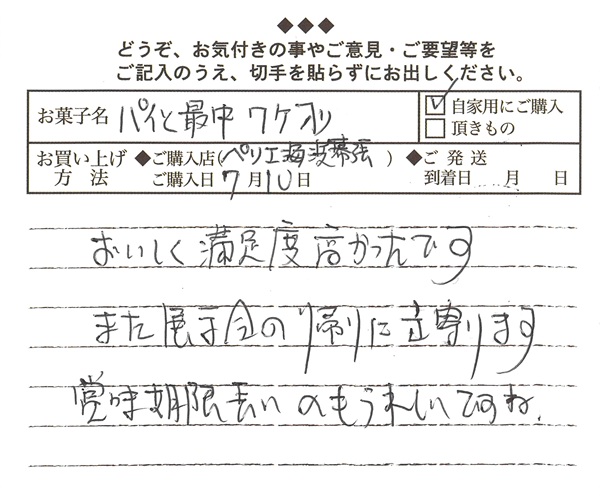 ◆◆◆
どうぞ、お気付きの事やご意見・ご要望等を
ご記入のうえ、切手を貼らずにお出しください。
お菓子名 パイと最中 ワケあり
自家用にご購入
頂きもの
お買い上げ方法 ◆ご購入店(ペリエ海浜幕張) ◆ご発送
ご購入日 7月10日 到着日 月 日
おいしく満足度高かったです
また展示会の帰りに立寄ります
賞味期限長いのもうれしいですね.